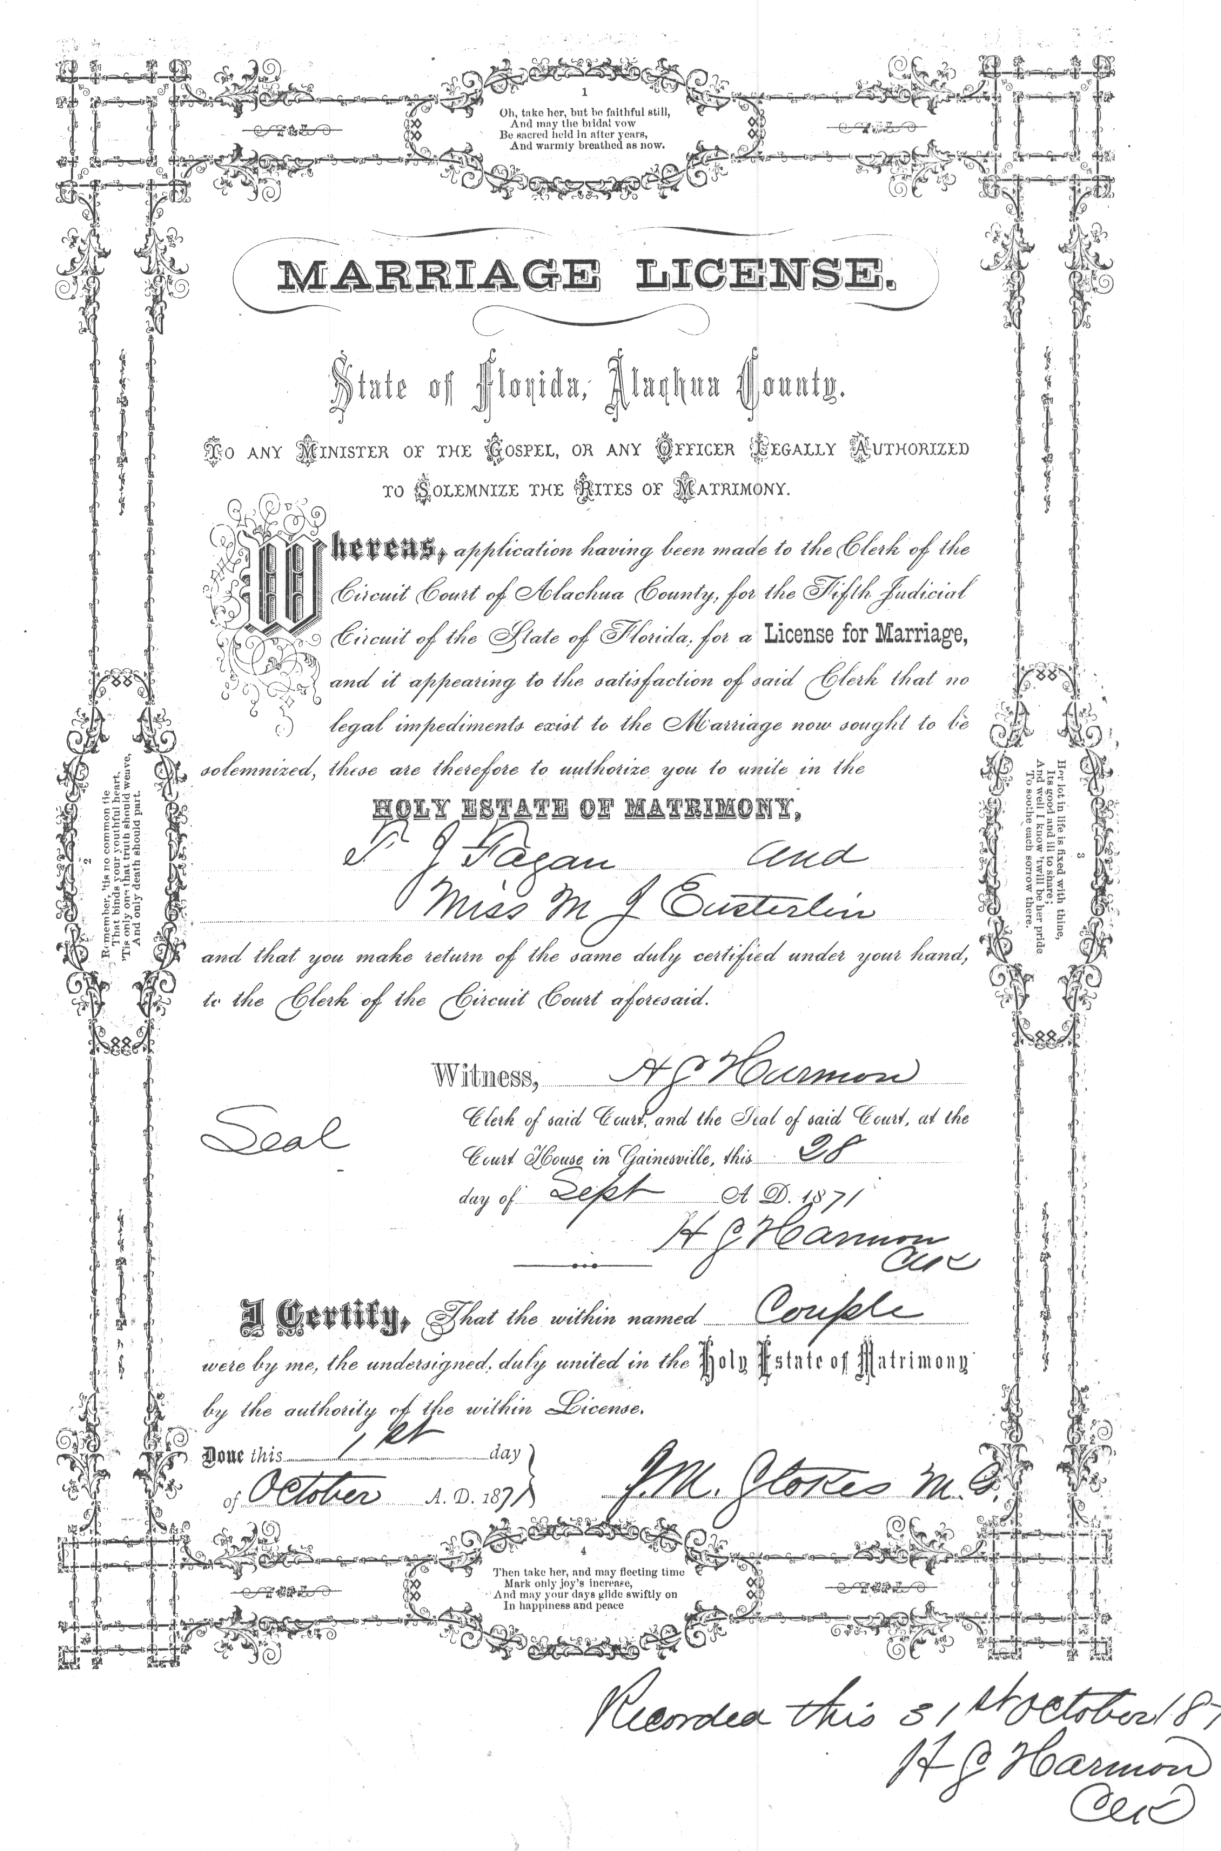 1
Oh, take her, but be faithful still,
And may the bridal vow
Be sacred held in after years,
And warmly breathed as now.
MARRIAGE LICENSE.
State of Florida, Alachua County.
TO ANY MINISTER OF THE GOSPEL, OR ANY OFFICER LEGALLY AUTHORIZED
TO SOLEMNIZE THE RITES OF MATRIMONY.
Whereas, application having been made to the Clerk of the
Circuit Court of Alachua County, for the Fifth Judicial
Circuit of the State of Florida, for a License for Marriage,
and it appearing to the satisfaction of said Clerk that no
legal impediments exist to the Marriage now sought to be
solemnized, these are therefore to authorize you to unite in the
HOLY ESTATE OF MATRIMONY,
F J Fagan and
Miss M J Eusterlin
and that you make return of the same duly certified under your hand,
to the Clerk of the Circuit Court aforesaid.
Witness, H G Harmon
Clerk of said Court, and the Seal of said Court, at the
Seal
Court House in Gainesville, this 28
day of Sept A D. 1871
H G Harmon
Clk
I Certify, That the within named Couple
were by me, the undersigned, duly united in the Holy Estate of Matrimony
by the authority of the within License.
Done this 1st day
of October A. D. 1871
J. M. Stokes M. G.
2
Remember, 'tis no common tie
That binds your youthful heart,
'Tis only one that truth should weave,
And only death should part.
3
Her lot in life is fixed with thine,
Its good and ill to share;
And well I know 'twill be her pride
To soothe each sorrow there.
4
Then take her, and may fleeting time
Mark only joy's increase,
And may your days glide swiftly on
In happiness and peace
Recorded this 31st October 187
H G Harmon
Clk